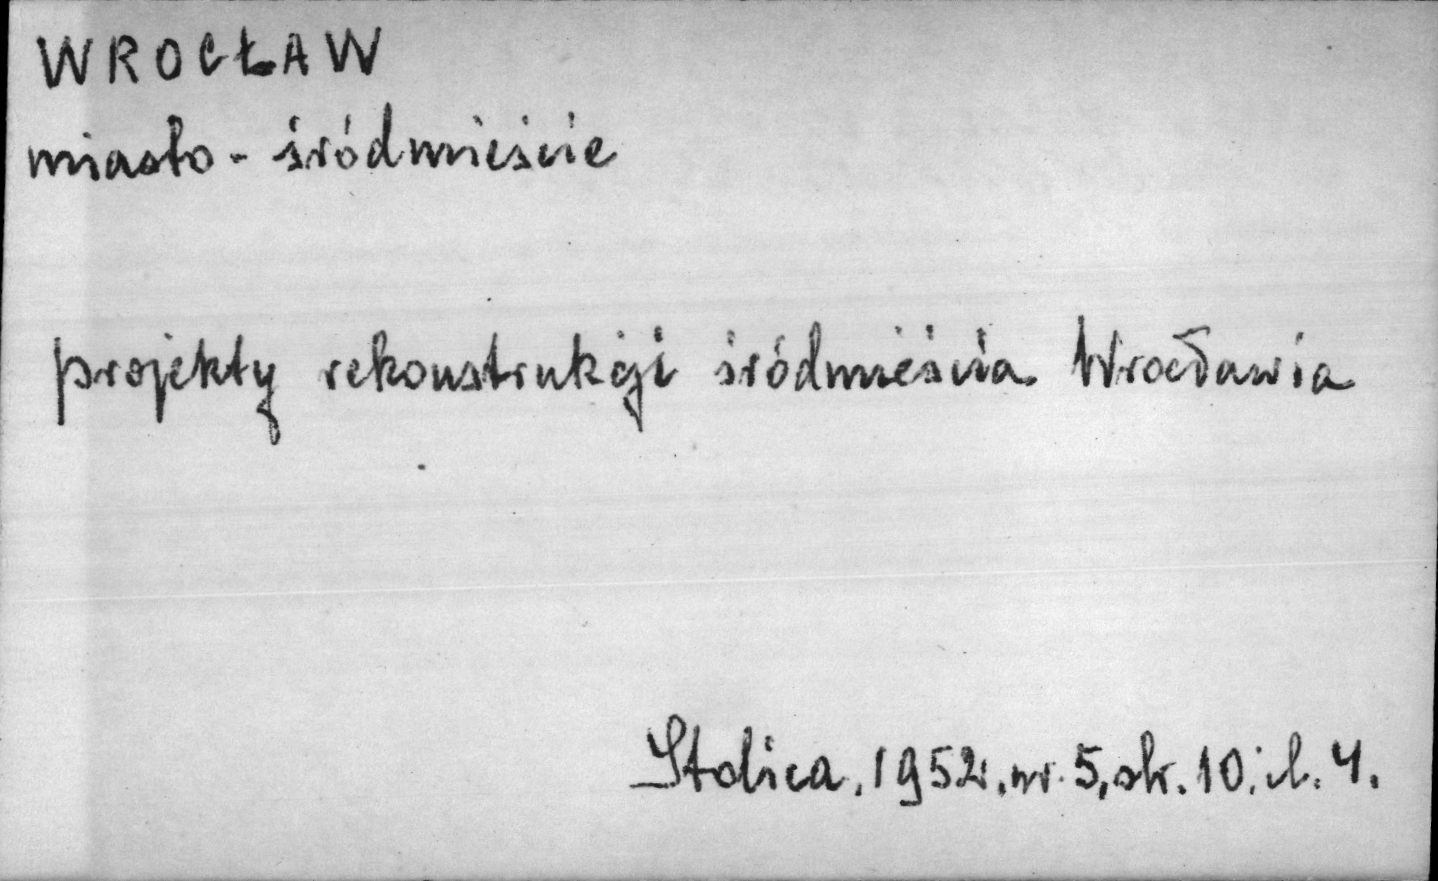 WROCŁAW
miasto - śródmieście
projekty rekonstrukcji śródmieścia Wrocławia
Stolica, 1952, nr. 5, str. 10, il. 4.